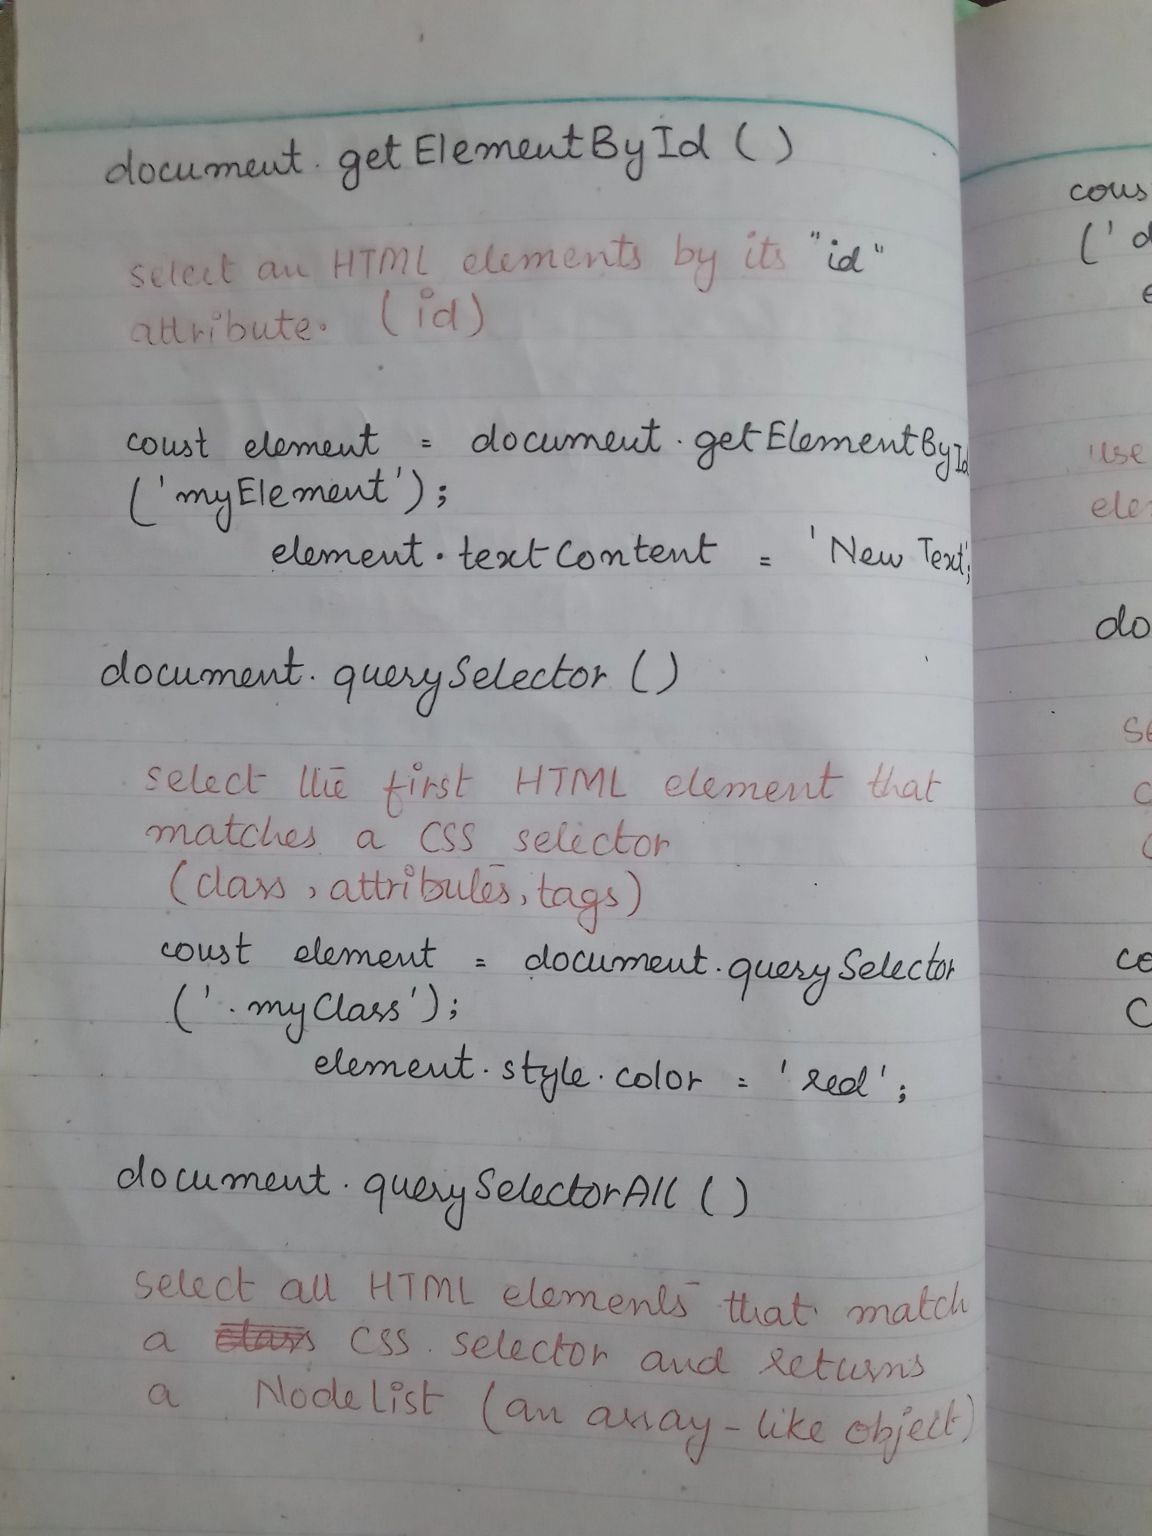 document.getElementById ()
select an HTML elements by its "id"
attribute. (id)
const element = document.getElementById
('myElement');
element.textContent = 'New Text';
document.querySelector ()
select the first HTML element that
matches a CSS selector
(class, attributes, tags)
const element = document.querySelector
('.myClass');
element.style.color = 'red';
document.querySelectorAll ()
select all HTML elements that match
a class CSS selector and returns
a NodeList (an array-like object)
cons
('d
e
use
elem
do
se
c
(
co
C